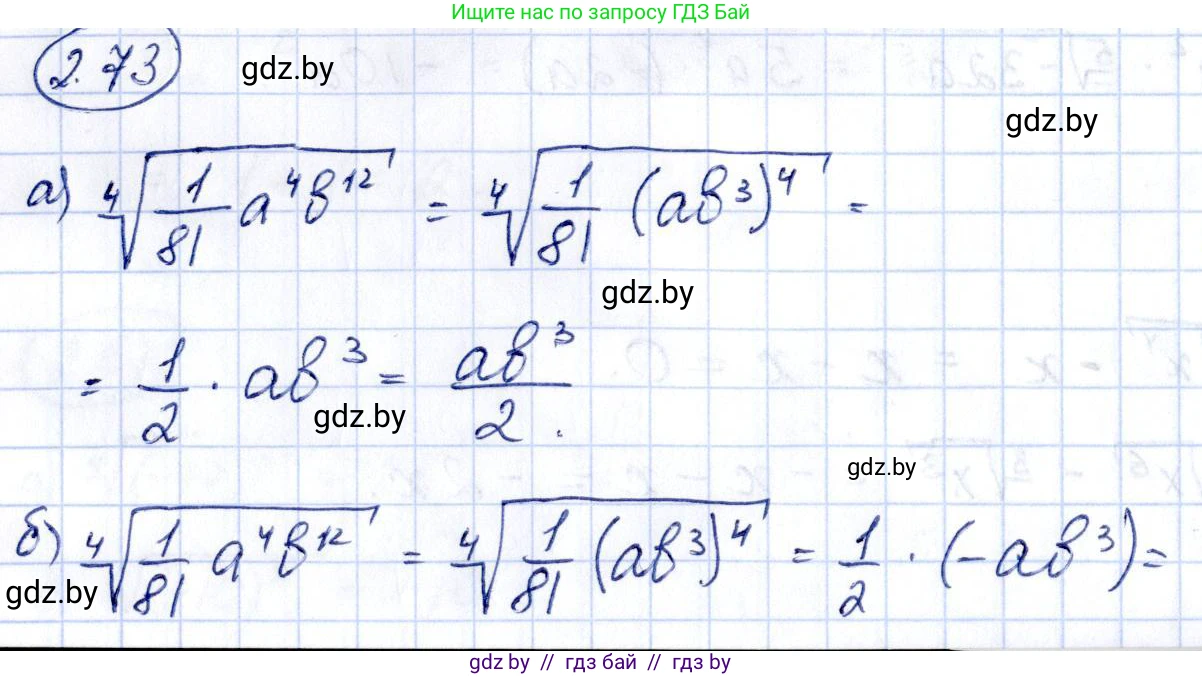 Ищите нас по запросу ГДЗ Бай
2.73
gdz.by
gdz.by
а) ⁴√(1/81 a⁴b¹²) = ⁴√(1/81 (ab³)⁴) =
gdz.by
= 1/2 · ab³ = ab³/2.
gdz.by
gdz.by
б) ⁴√(1/81 a⁴b¹²) = ⁴√(1/81 (ab³)⁴) = 1/2 · (-ab³) =
gdz.by
gdz by // гдз бай // гдз by